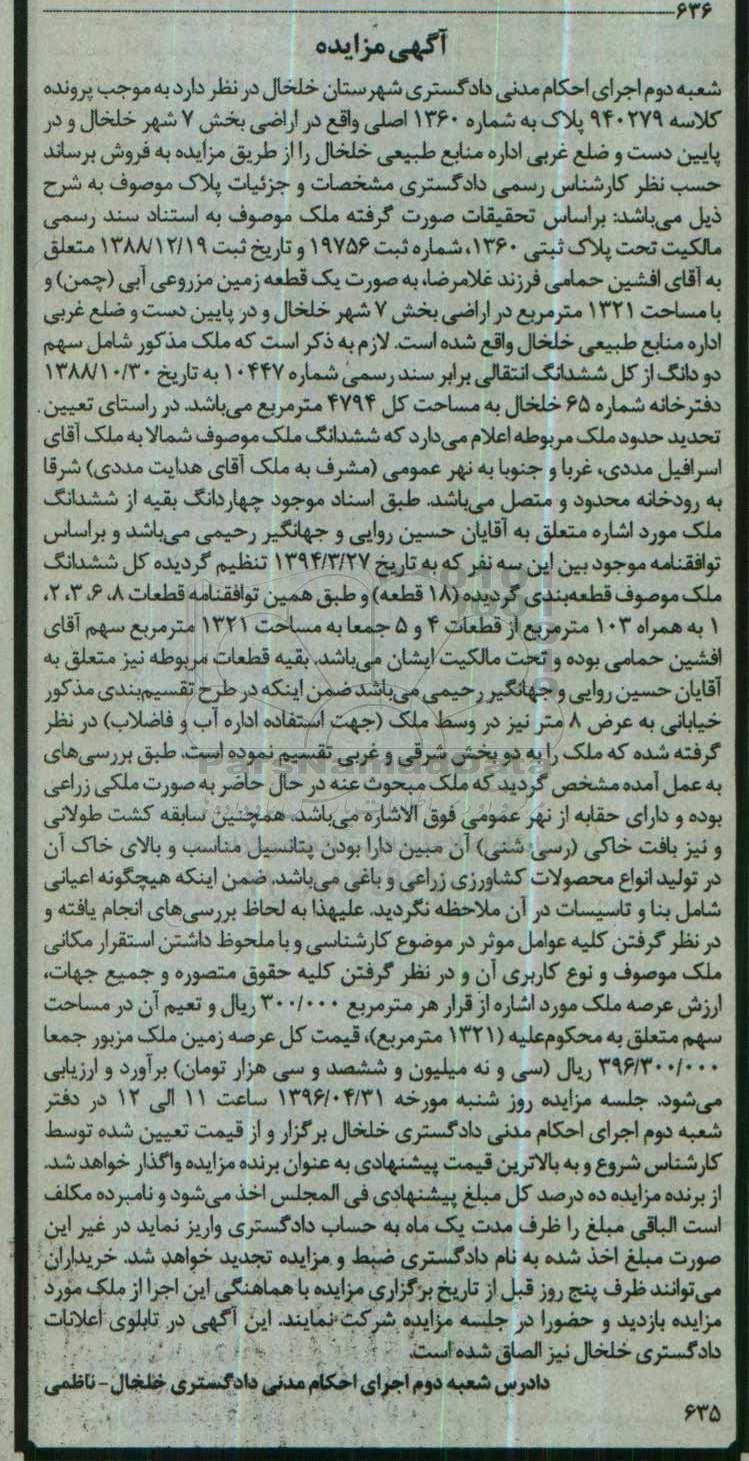 ۶۳۶
آگهی مزایده
شعبه دوم اجرای احکام مدنی دادگستری شهرستان خلخال در نظر دارد به موجب پرونده
کلاسه ۹۴۰۲۷۹ پلاک به شماره ۱۳۶۰ اصلی واقع در اراضی بخش ۷ شهر خلخال و در
پایین دست و ضلع غربی اداره منابع طبیعی خلخال را از طریق مزایده به فروش برساند
حسب نظر کارشناس رسمی دادگستری مشخصات و جزئیات پلاک موصوف به شرح
ذیل می‌باشد: براساس تحقیقات صورت گرفته ملک موصوف به استناد سند رسمی
مالکیت تحت پلاک ثبتی ۱۳۶۰، شماره ثبت ۱۹۷۵۶ و تاریخ ثبت ۱۳۸۸/۱۲/۱۹ متعلق
به آقای افشین حمامی فرزند غلامرضا، به صورت یک قطعه زمین مزروعی آبی (چمن) و
با مساحت ۱۳۲۱ مترمربع در اراضی بخش ۷ شهر خلخال و در پایین دست و ضلع غربی
اداره منابع طبیعی خلخال واقع شده است. لازم به ذکر است که ملک مذکور شامل سهم
دو دانگ از کل ششدانگ انتقالی برابر سند رسمی شماره ۱۰۴۴۷ به تاریخ ۱۳۸۸/۱۰/۳۰
دفترخانه شماره ۶۵ خلخال به مساحت کل ۴۷۹۴ مترمربع می‌باشد. در راستای تعیین
تحدید حدود ملک مربوطه اعلام می‌دارد که ششدانگ ملک موصوف شمالا به ملک آقای
اسرافیل مددی، غربا و جنوبا به نهر عمومی (مشرف به ملک آقای هدایت مددی) شرقا
به رودخانه محدود و متصل می‌باشد. طبق اسناد موجود چهاردانگ بقیه از ششدانگ
ملک مورد اشاره متعلق به آقایان حسین روایی و جهانگیر رحیمی می‌باشد و براساس
توافقنامه موجود بین این سه نفر که به تاریخ ۱۳۹۴/۳/۲۷ تنظیم گردیده کل ششدانگ
ملک موصوف قطعه‌بندی گردیده (۱۸ قطعه) و طبق همین توافقنامه قطعات ۸، ۶، ۳، ۲،
۱ به همراه ۱۰۳ مترمربع از قطعات ۴ و ۵ جمعا به مساحت ۱۳۲۱ مترمربع سهم آقای
افشین حمامی بوده و تحت مالکیت ایشان می‌باشد. بقیه قطعات مربوطه نیز متعلق به
آقایان حسین روایی و جهانگیر رحیمی می‌باشد ضمن اینکه در طرح تقسیم‌بندی مذکور
خیابانی به عرض ۸ متر نیز در وسط ملک (جهت استفاده اداره آب و فاضلاب) در نظر
گرفته شده که ملک را به دو بخش شرقی و غربی تقسیم نموده است. طبق بررسی‌های
به عمل آمده مشخص گردید که ملک مبحوث عنه در حال حاضر به صورت ملکی زراعی
بوده و دارای حقابه از نهر عمومی فوق الاشاره می‌باشد. همچنین سابقه کشت طولانی
و نیز بافت خاکی (رسی شنی) آن مبین دارا بودن پتانسیل مناسب و بالای خاک آن
در تولید انواع محصولات کشاورزی زراعی و باغی می‌باشد. ضمن اینکه هیچگونه اعیانی
شامل بنا و تاسیسات در آن ملاحظه نگردید. علیهذا به لحاظ بررسی‌های انجام یافته و
در نظر گرفتن کلیه عوامل موثر در موضوع کارشناسی و با ملحوظ داشتن استقرار مکانی
ملک موصوف و نوع کاربری آن و در نظر گرفتن کلیه حقوق متصوره و جمیع جهات،
ارزش عرصه ملک مورد اشاره از قرار هر مترمربع ۳۰۰/۰۰۰ ریال و تعیم آن در مساحت
سهم متعلق به محکوم‌علیه (۱۳۲۱ مترمربع)، قیمت کل عرصه زمین ملک مزبور جمعا
۳۹۶/۳۰۰/۰۰۰ ریال (سی و نه میلیون و ششصد و سی هزار تومان) برآورد و ارزیابی
می‌شود. جلسه مزایده روز شنبه مورخه ۱۳۹۶/۰۴/۳۱ ساعت ۱۱ الی ۱۲ در دفتر
شعبه دوم اجرای احکام مدنی دادگستری خلخال برگزار و از قیمت تعیین شده توسط
کارشناس شروع و به بالاترین قیمت پیشنهادی به عنوان برنده مزایده واگذار خواهد شد.
از برنده مزایده ده درصد کل مبلغ پیشنهادی فی المجلس اخذ می‌شود و نامبرده مکلف
است الباقی مبلغ را ظرف مدت یک ماه به حساب دادگستری واریز نماید در غیر این
صورت مبلغ اخذ شده به نام دادگستری ضبط و مزایده تجدید خواهد شد. خریداران
می‌توانند ظرف پنج روز قبل از تاریخ برگزاری مزایده با هماهنگی این اجرا از ملک مورد
مزایده بازدید و حضورا در جلسه مزایده شرکت نمایند. این آگهی در تابلوی اعلانات
دادگستری خلخال نیز الصاق شده است.
دادرس شعبه دوم اجرای احکام مدنی دادگستری خلخال - ناظمی
۶۳۵